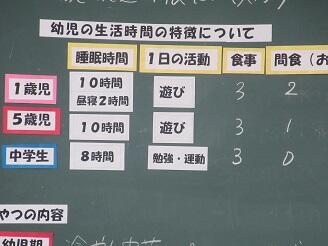 幼児の生活時間の特徴について
睡眠時間 1日の活動 食事 間食(お
1歳児 10時間 昼寝2時間 遊び 3 2
5歳児 10時間 遊び 3 1
中学生 8時間 勉強・運動 3 0
やつの内容
幼児期